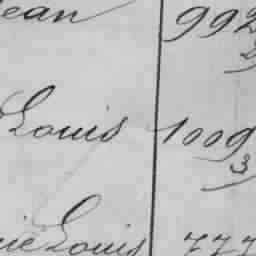 ean 992
Louis 1009
3
ie Louis 777